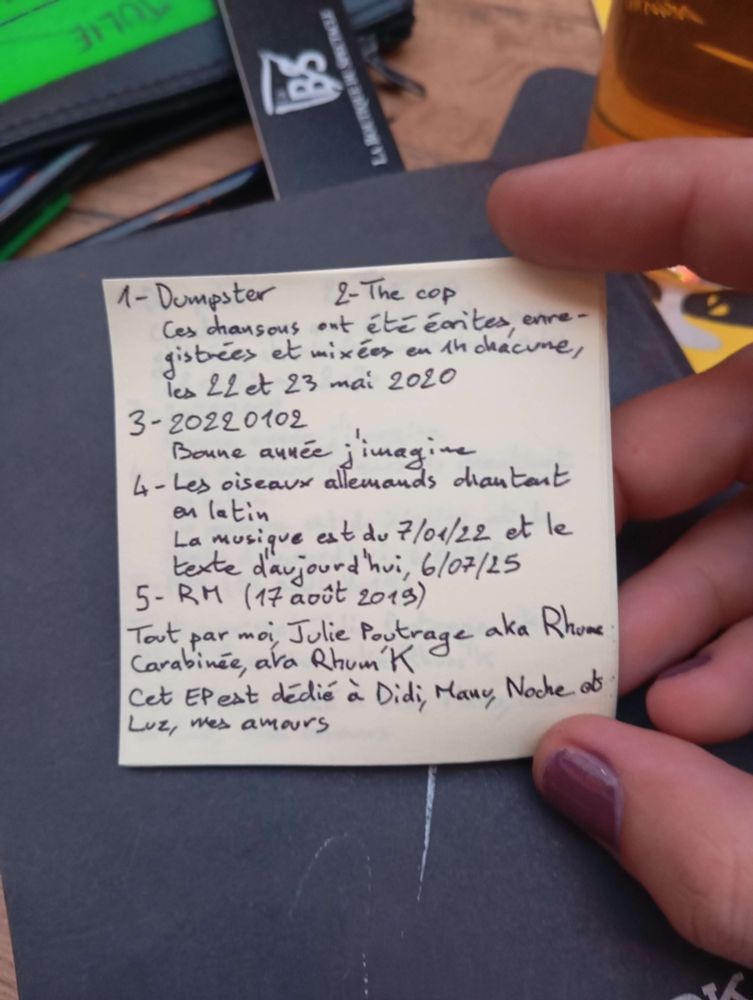 JULIE
BS
LA BOUTIQUE DU
1- Dumpster 2- The cop
Ces chansons ont été écrites, enre-
gistrées et mixées en 1h chacune,
les 22 et 23 mai 2020
3- 20220102
Bonne année j'imagine
4- Les oiseaux allemands chantent
en latin
La musique est du 7/01/22 et le
texte d'aujourd'hui, 6/07/25
5- RM (17 août 2019)
Tout par moi, Julie Poutrage aka Rhume
Carabinée, aka Rhum'K
Cet EP est dédié à Didi, Manu, Noche et
Luz, mes amours